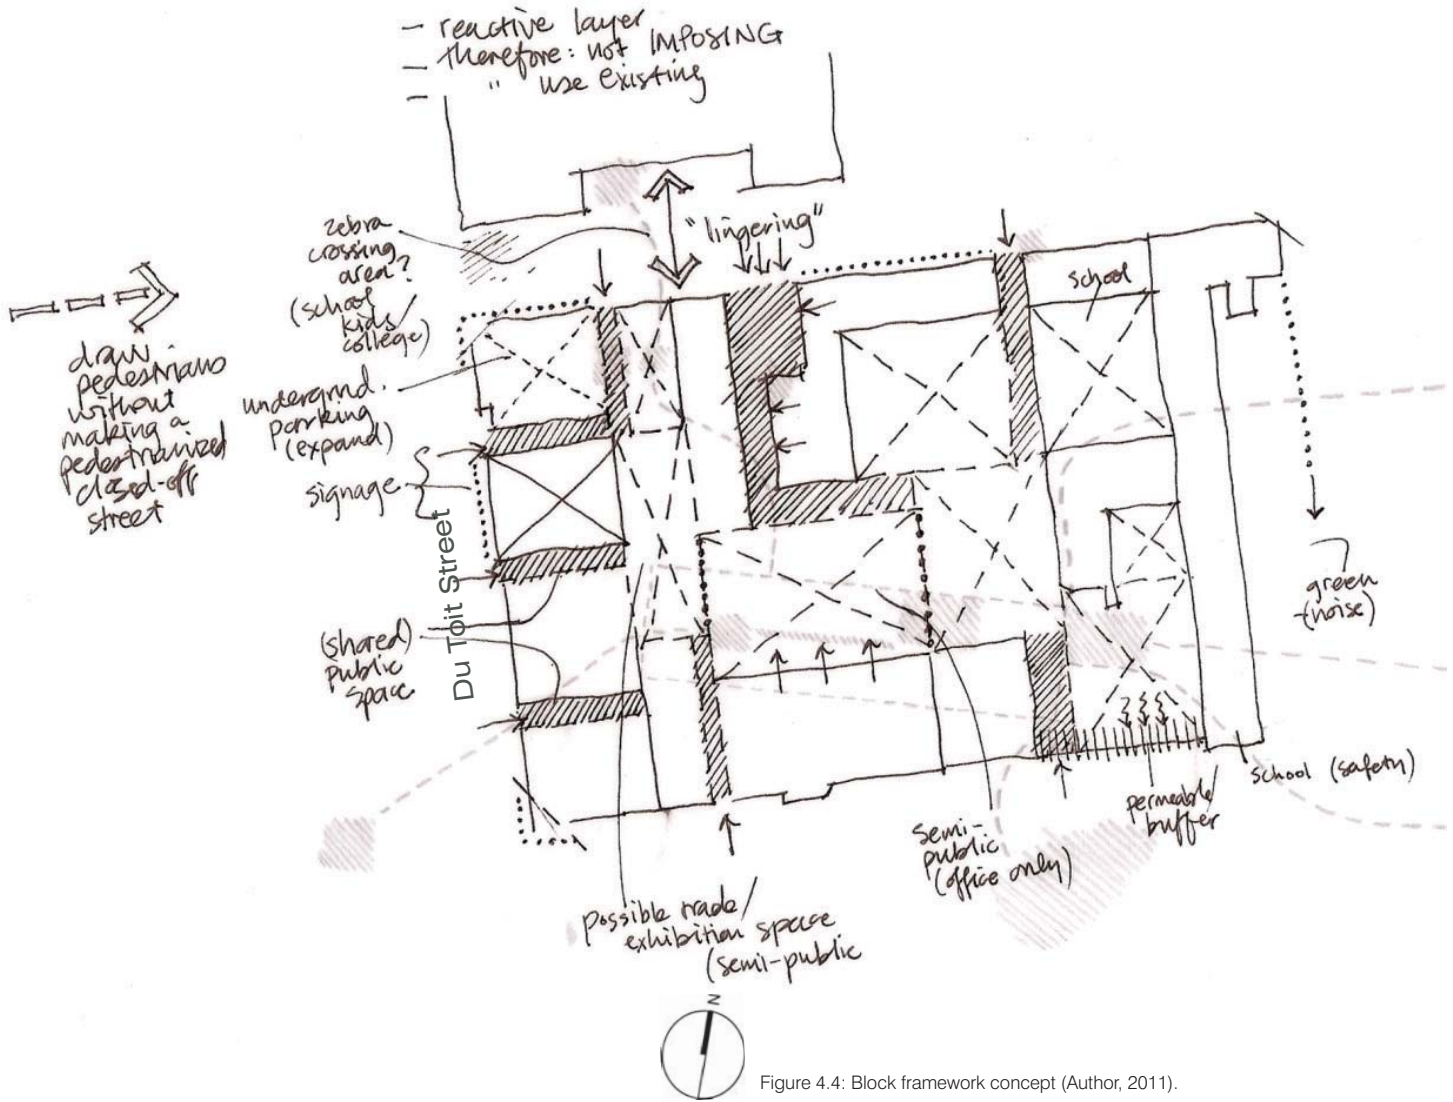 – reactive layer
– therefore: not IMPOSING
– " use existing
zebra
crossing
area?
(school
kids/
college)
"lingering"
school
draw
pedestrians
without
making a
pedestrianized
closed-off
street
undergrnd.
parking
(expand)
signage
Du Toit Street
(shared)
public
space
green
(noise)
school (safety)
permeable/
buffer
semi-
public
(office only)
possible trade/
exhibition space
(semi-public
N
Figure 4.4: Block framework concept (Author, 2011).